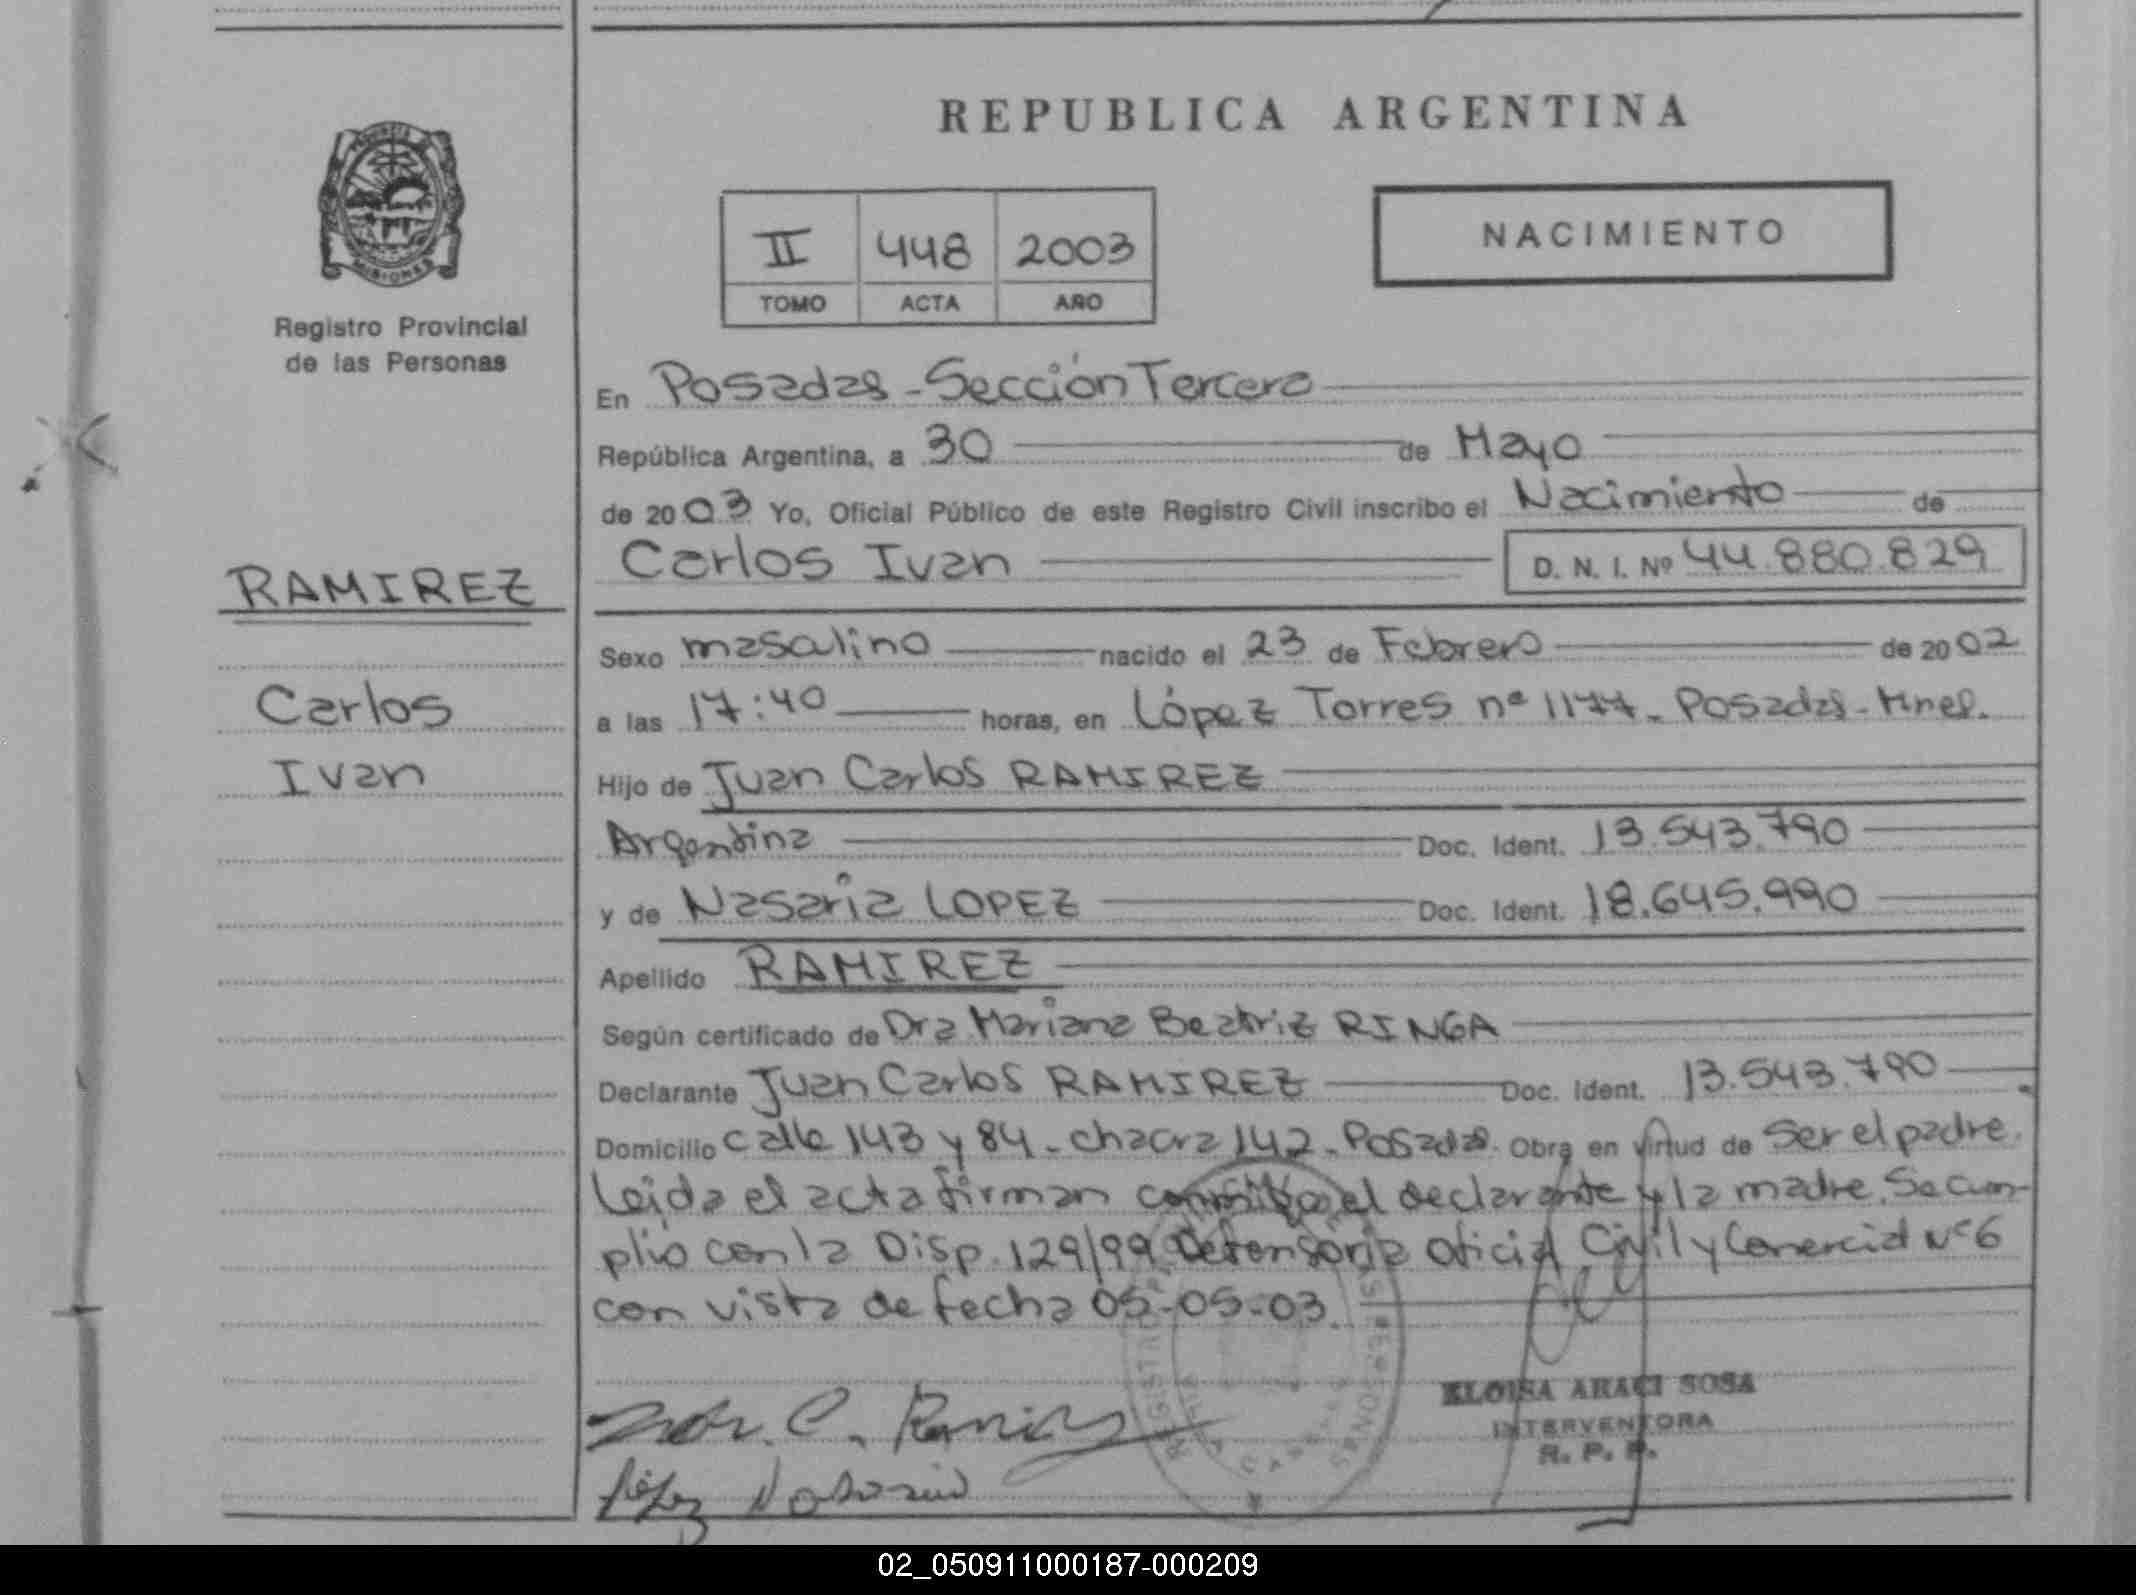 REPUBLICA ARGENTINA
PROVINCIA
MISIONES
Registro Provincial
de las Personas
II 448 2003
TOMO ACTA AÑO
NACIMIENTO
En Posadas - Sección Tercera
República Argentina, a 30 de Mayo
de 2003 Yo, Oficial Público de este Registro Civil inscribo el Nacimiento de
Carlos Ivan D. N. I. Nº 44.880.829
RAMIREZ
Carlos
Ivan
Sexo masculino nacido el 23 de Febrero de 2002
a las 17:40 horas, en López Torres nº 1177 - Posadas - Mnes.
Hijo de Juan Carlos RAMIREZ
Argentina Doc. Ident. 13.543.790
y de Nasaria LOPEZ Doc. Ident. 18.645.990
Apellido RAMIREZ
Según certificado de Dra Mariana Beatriz RINGA
Declarante Juan Carlos RAMIREZ Doc. Ident. 13.543.790
Domicilio calle 143 y 84 - chacra 142 - Posadas. Obra en virtud de Ser el padre.
Leida el acta firman conmigo el declarante y la madre. Se cum-
plio con la Disp. 129/99 Defensoria oficial Civil y Comercial Nº 6
con vista de fecha 05-05-03.
C. Ramirez
López Nasaria
ELOISA ARACI SOSA
INTERVENTORA
R. P. P.
02_050911000187-000209